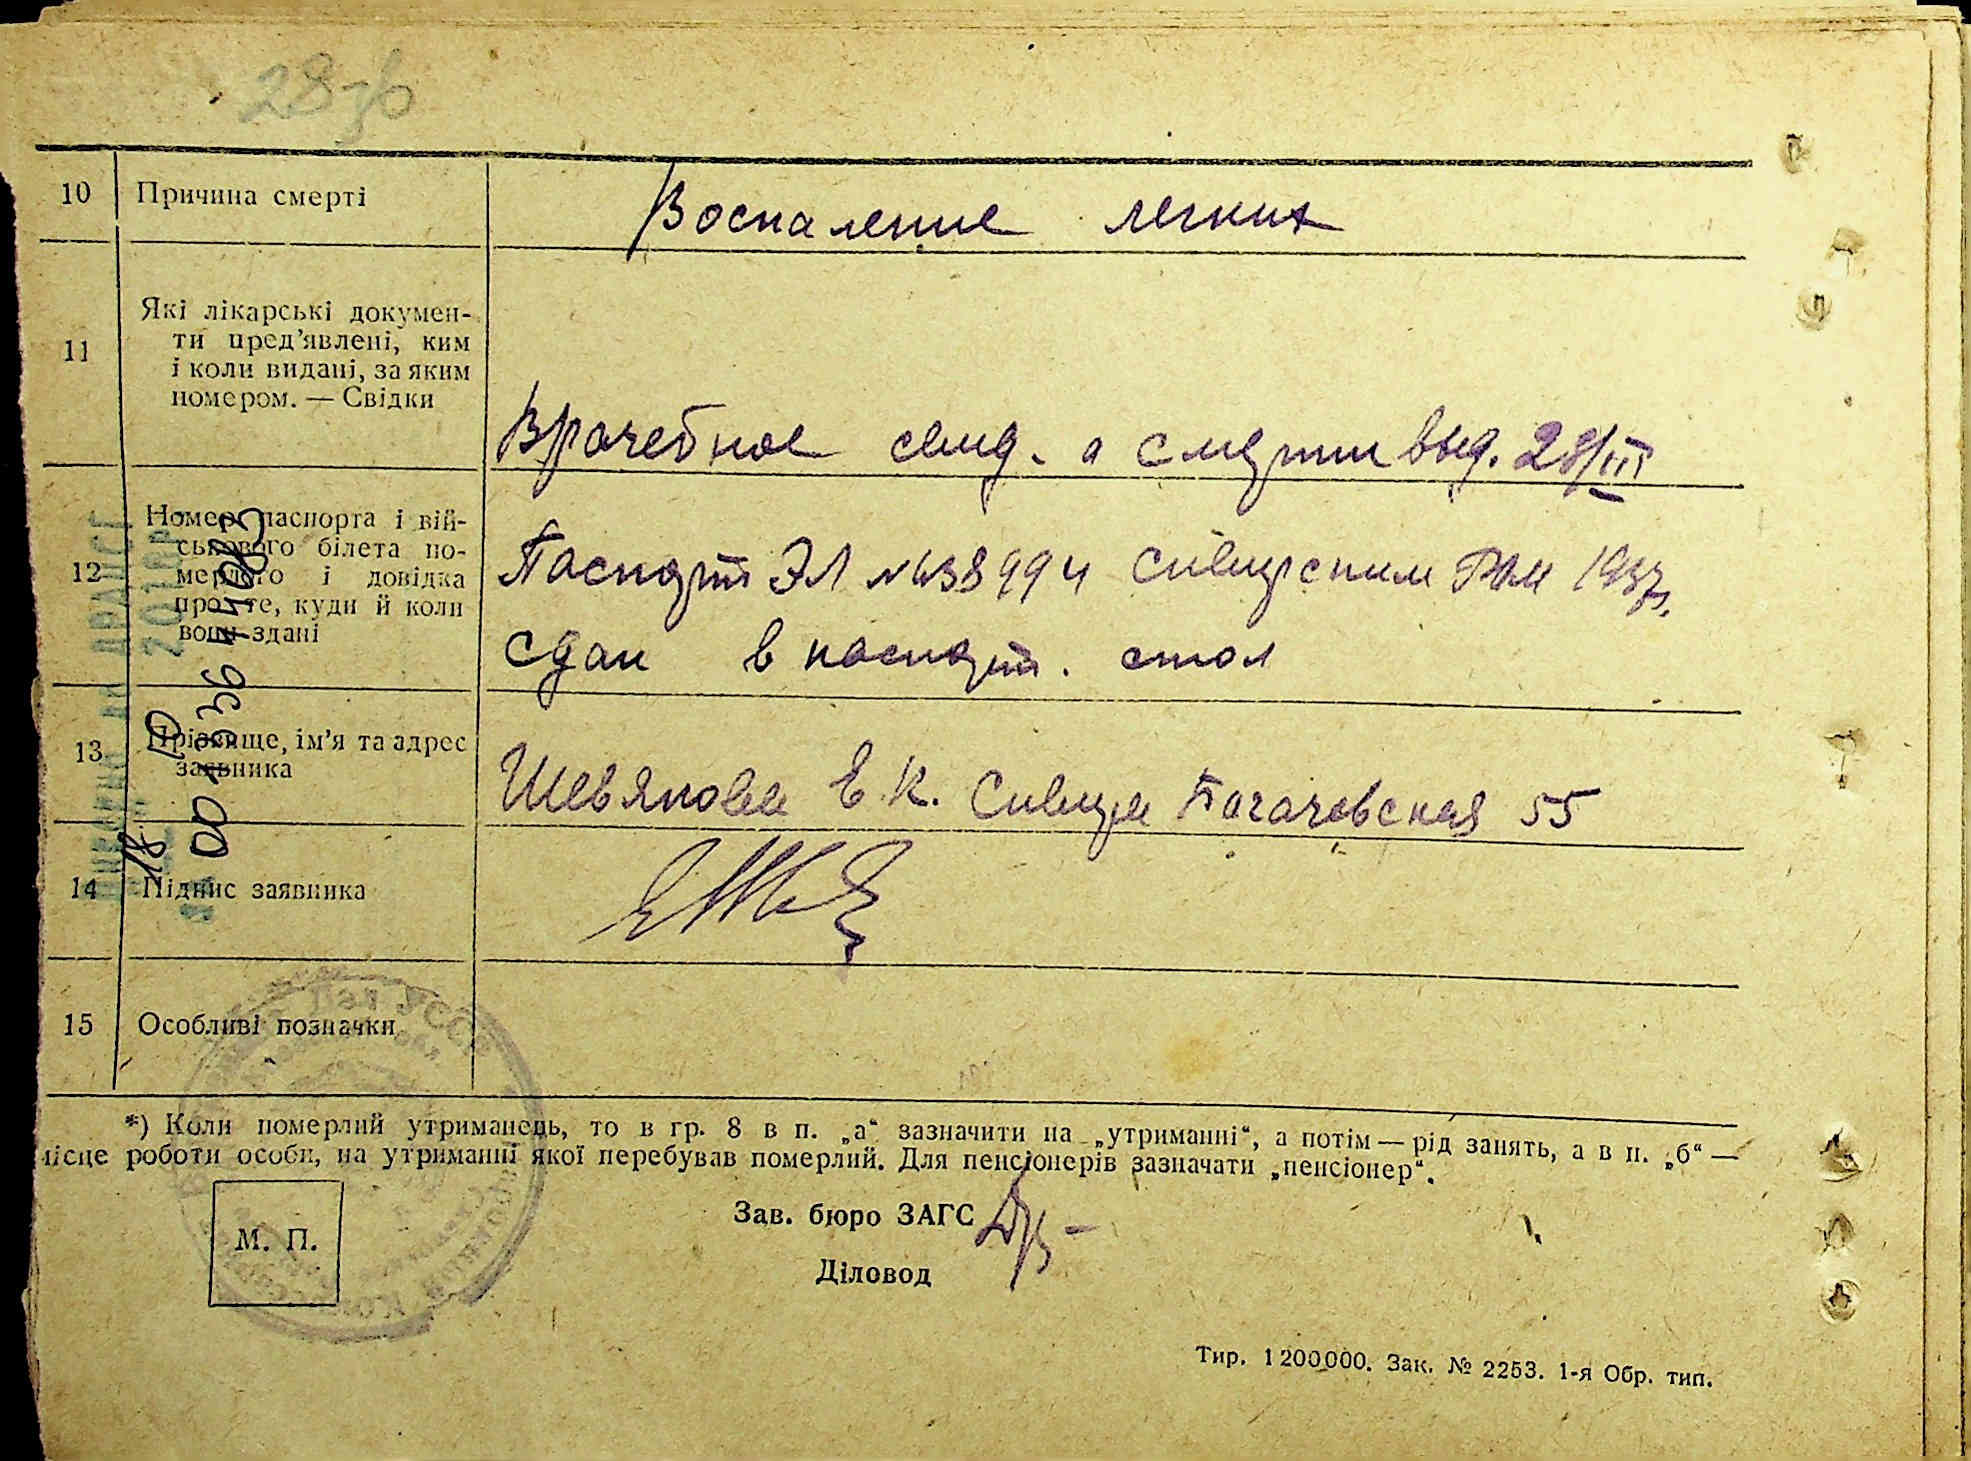 28
10 Причина смерті Воспаление легких
11 Які лікарські докумен-
ти пред’явлені, ким
і коли видані, за яким
номером. — Свідки
Врачебное свид. о смерти выд. 28/III
12 Номер паспорта і вій-
ськового білета по-
мерлого і довідка
про те, куди й коли
вони здані
Паспорт ЭЛ № 638994 РКМ 1937г.
сдан в паспорт. стол
13 Прізвище, ім’я та адрес
заявника
Е. К. 55
14 Підпис заявника
15 Особливі позначки
*) Коли померлий утриманець, то в гр. 8 в п. „а“ зазначити на „утриманні“, а потім — рід занять, а в п. „б“ —
місце роботи особи, на утриманні якої перебував померлий. Для пенсіонерів зазначати „пенсіонер“.
М. П.
Зав. бюро ЗАГС
Діловод
Тир. 1200000. Зак. № 2253. 1-я Обр. тип.